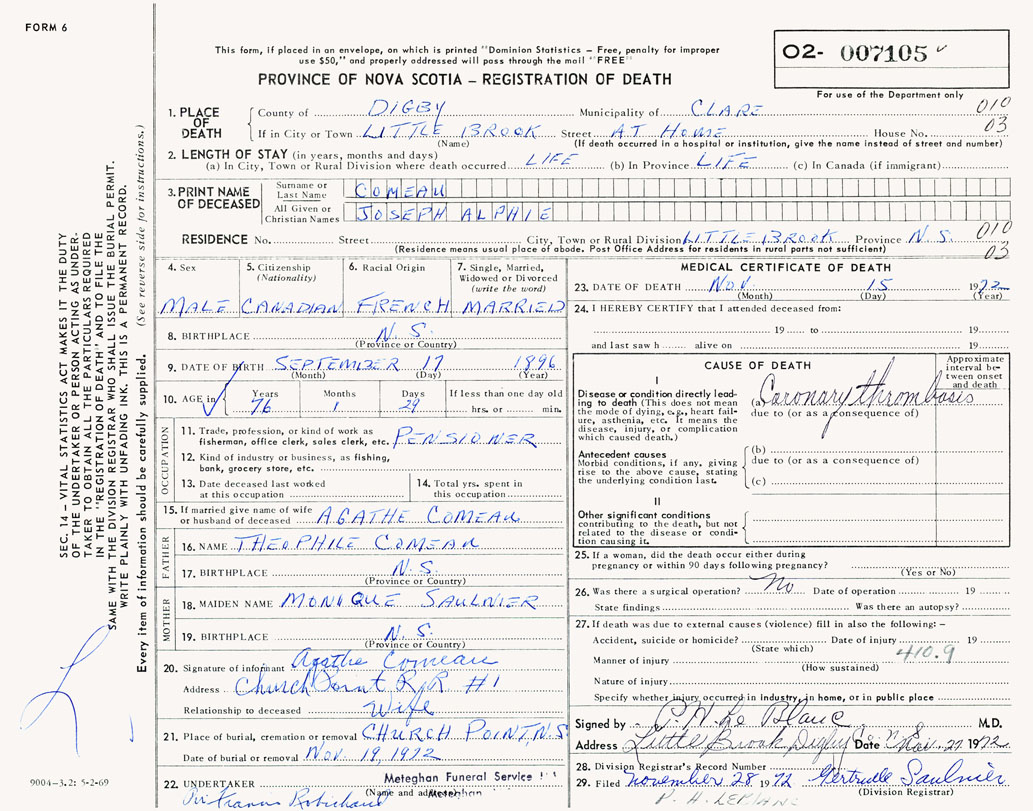 FORM 6
This form, if placed in an envelope, on which is printed "Dominion Statistics – Free, penalty for improper
use $50," and properly addressed will pass through the mail "FREE"
PROVINCE OF NOVA SCOTIA – REGISTRATION OF DEATH
O2- 007105
For use of the Department only
1. PLACE OF DEATH County of DIGBY Municipality of CLARE 010
If in City or Town LITTLE BROOK Street AT HOME House No. 03
(Name) (If death occurred in a hospital or institution, give the name instead of street and number)
2. LENGTH OF STAY (in years, months and days)
(a) In City, Town or Rural Division where death occurred LIFE (b) In Province LIFE (c) In Canada (if immigrant)
3. PRINT NAME OF DECEASED
Surname or Last Name COMEAU
All Given or Christian Names JOSEPH ALPHIE
RESIDENCE No. Street City, Town or Rural Division LITTLE BROOK Province N.S. 010
(Residence means usual place of abode. Post Office Address for residents in rural parts not sufficient) 03
4. Sex
MALE
5. Citizenship (Nationality)
CANADIAN
6. Racial Origin
FRENCH
7. Single, Married, Widowed or Divorced (write the word)
MARRIED
8. BIRTHPLACE N.S.
(Province or Country)
9. DATE OF BIRTH SEPTEMBER 17 1896
(Month) (Day) (Year)
10. AGE in Years Months Days If less than one day old
76 1 29 hrs. or min.
OCCUPATION
11. Trade, profession, or kind of work as
fisherman, office clerk, sales clerk, etc. PENSIONER
12. Kind of industry or business, as fishing,
bank, grocery store, etc.
13. Date deceased last worked
at this occupation
14. Total yrs. spent in
this occupation
15. If married give name of wife
or husband of deceased AGATHE COMEAU
FATHER
16. NAME THEOPHILE COMEAU
17. BIRTHPLACE N.S.
(Province or Country)
MOTHER
18. MAIDEN NAME MONIQUE SAULNIER
19. BIRTHPLACE N.S.
(Province or Country)
20. Signature of informant Agathe Comeau
Address Church Point R.R. #1
Relationship to deceased Wife
21. Place of burial, cremation or removal CHURCH POINT, N.S.
Date of burial or removal Nov. 19, 1972
22. UNDERTAKER Meteghan Funeral Service
(Name and address) Meteghan
Francis Robichaud
MEDICAL CERTIFICATE OF DEATH
23. DATE OF DEATH NOV. 15 1972
(Month) (Day) (Year)
24. I HEREBY CERTIFY that I attended deceased from:
19 to 19
and last saw h alive on 19
CAUSE OF DEATH
Approximate interval between onset and death
I
Disease or condition directly leading to death (This does not mean
the mode of dying, e.g., heart failure, asthenia, etc. It means the
disease, injury, or complication
which caused death.)
(a) Coronary thrombosis
due to (or as a consequence of)
Antecedent causes
Morbid conditions, if any, giving
rise to the above cause, stating
the underlying condition last.
(b)
due to (or as a consequence of)
(c)
II
Other significant conditions
contributing to the death, but not
related to the disease or condition causing it.
25. If a woman, did the death occur either during
pregnancy or within 90 days following pregnancy?
(Yes or No)
26. Was there a surgical operation? No Date of operation 19
State findings Was there an autopsy?
27. If death was due to external causes (violence) fill in also the following: –
Accident, suicide or homicide? Date of injury 19
(State which) 410.9
Manner of injury
(How sustained)
Nature of injury
Specify whether injury occurred in industry, in home, or in public place
Signed by P. H. Le Blanc M.D.
Address Little Brook Digby Co. N.S. Date Nov. 27 1972
28. Division Registrar's Record Number
29. Filed November 28 1972 Gertrude Saulnier
(Division Registrar)
P. H. LEBLANC
SEC. 14 – VITAL STATISTICS ACT MAKES IT THE DUTY
OF THE UNDERTAKER OR PERSON ACTING AS UNDER-
TAKER TO OBTAIN ALL THE PARTICULARS REQUIRED
IN THE "REGISTRATION OF DEATH" AND TO FILE THE
SAME WITH THE DIVISION REGISTRAR WHO SHALL ISSUE THE BURIAL PERMIT.
WRITE PLAINLY WITH UNFADING INK. THIS IS A PERMANENT RECORD.
Every item of information should be carefully supplied. (See reverse side for instructions.)
9004-3.2: 5-2-69